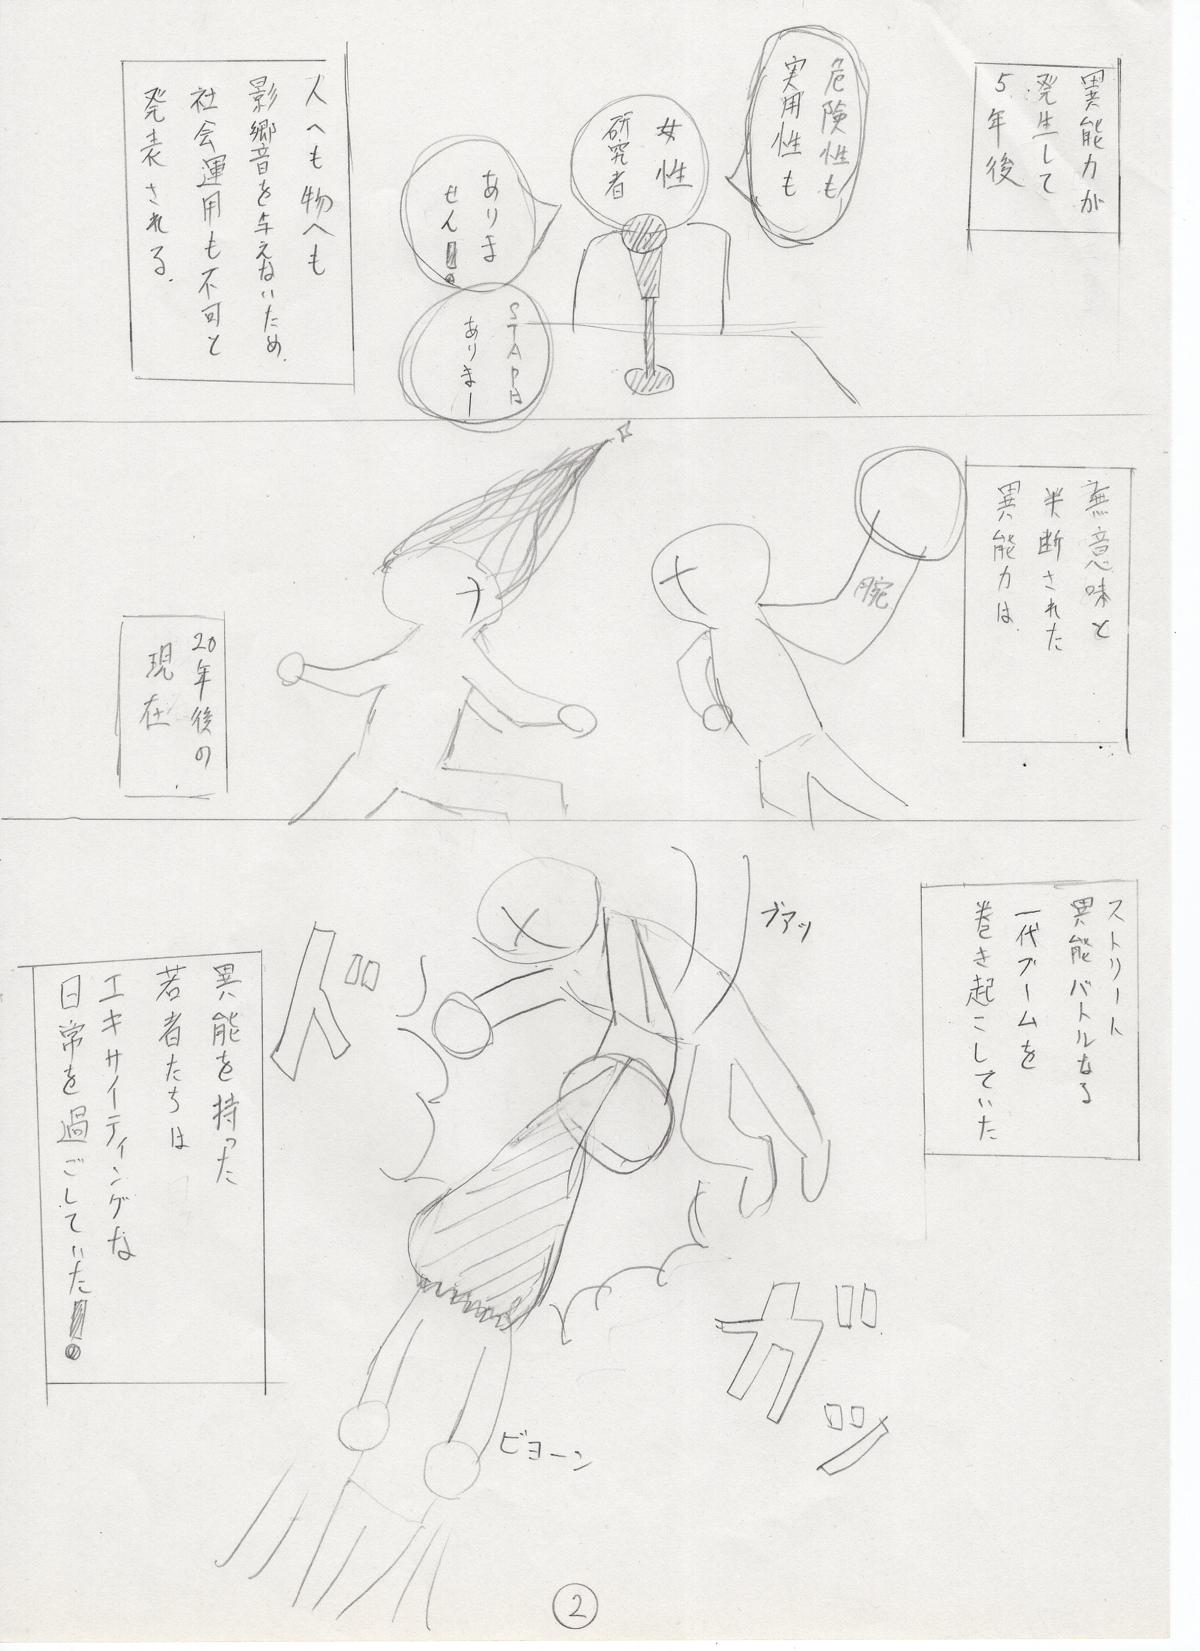 異能力が
発生して
5年後
危険性も
実用性も
女性
研究者
ありま
せん!
STAPは
ありまー
人へも物へも
影響を与えないため
社会運用も不可と
発表される.
無意味と
判断された
異能力は
腕
20年後の
現在
ストリート
異能バトルなる
一代ブームを
巻き起こしていた
ブアッ
ドガッ
ビヨーン
異能を持った
若者たちは
エキサイティングな
日常を過ごしていた!
2